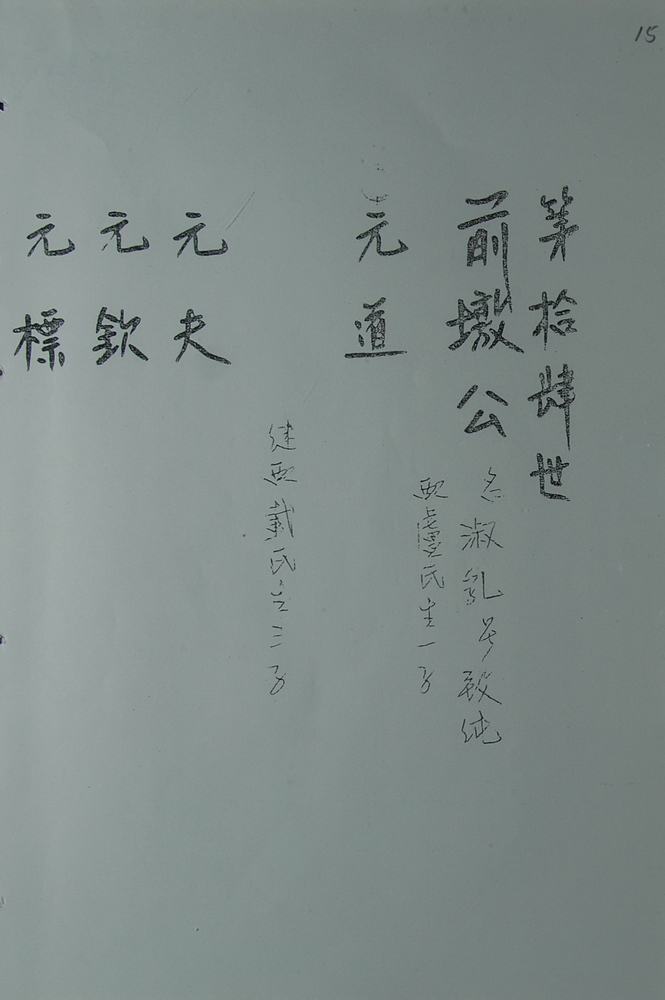 15
第拾肆世
前墩公
名淑乳号毅纯
配盧氏生一子
元道
继配戴氏生三子
元夫
元欽
元標